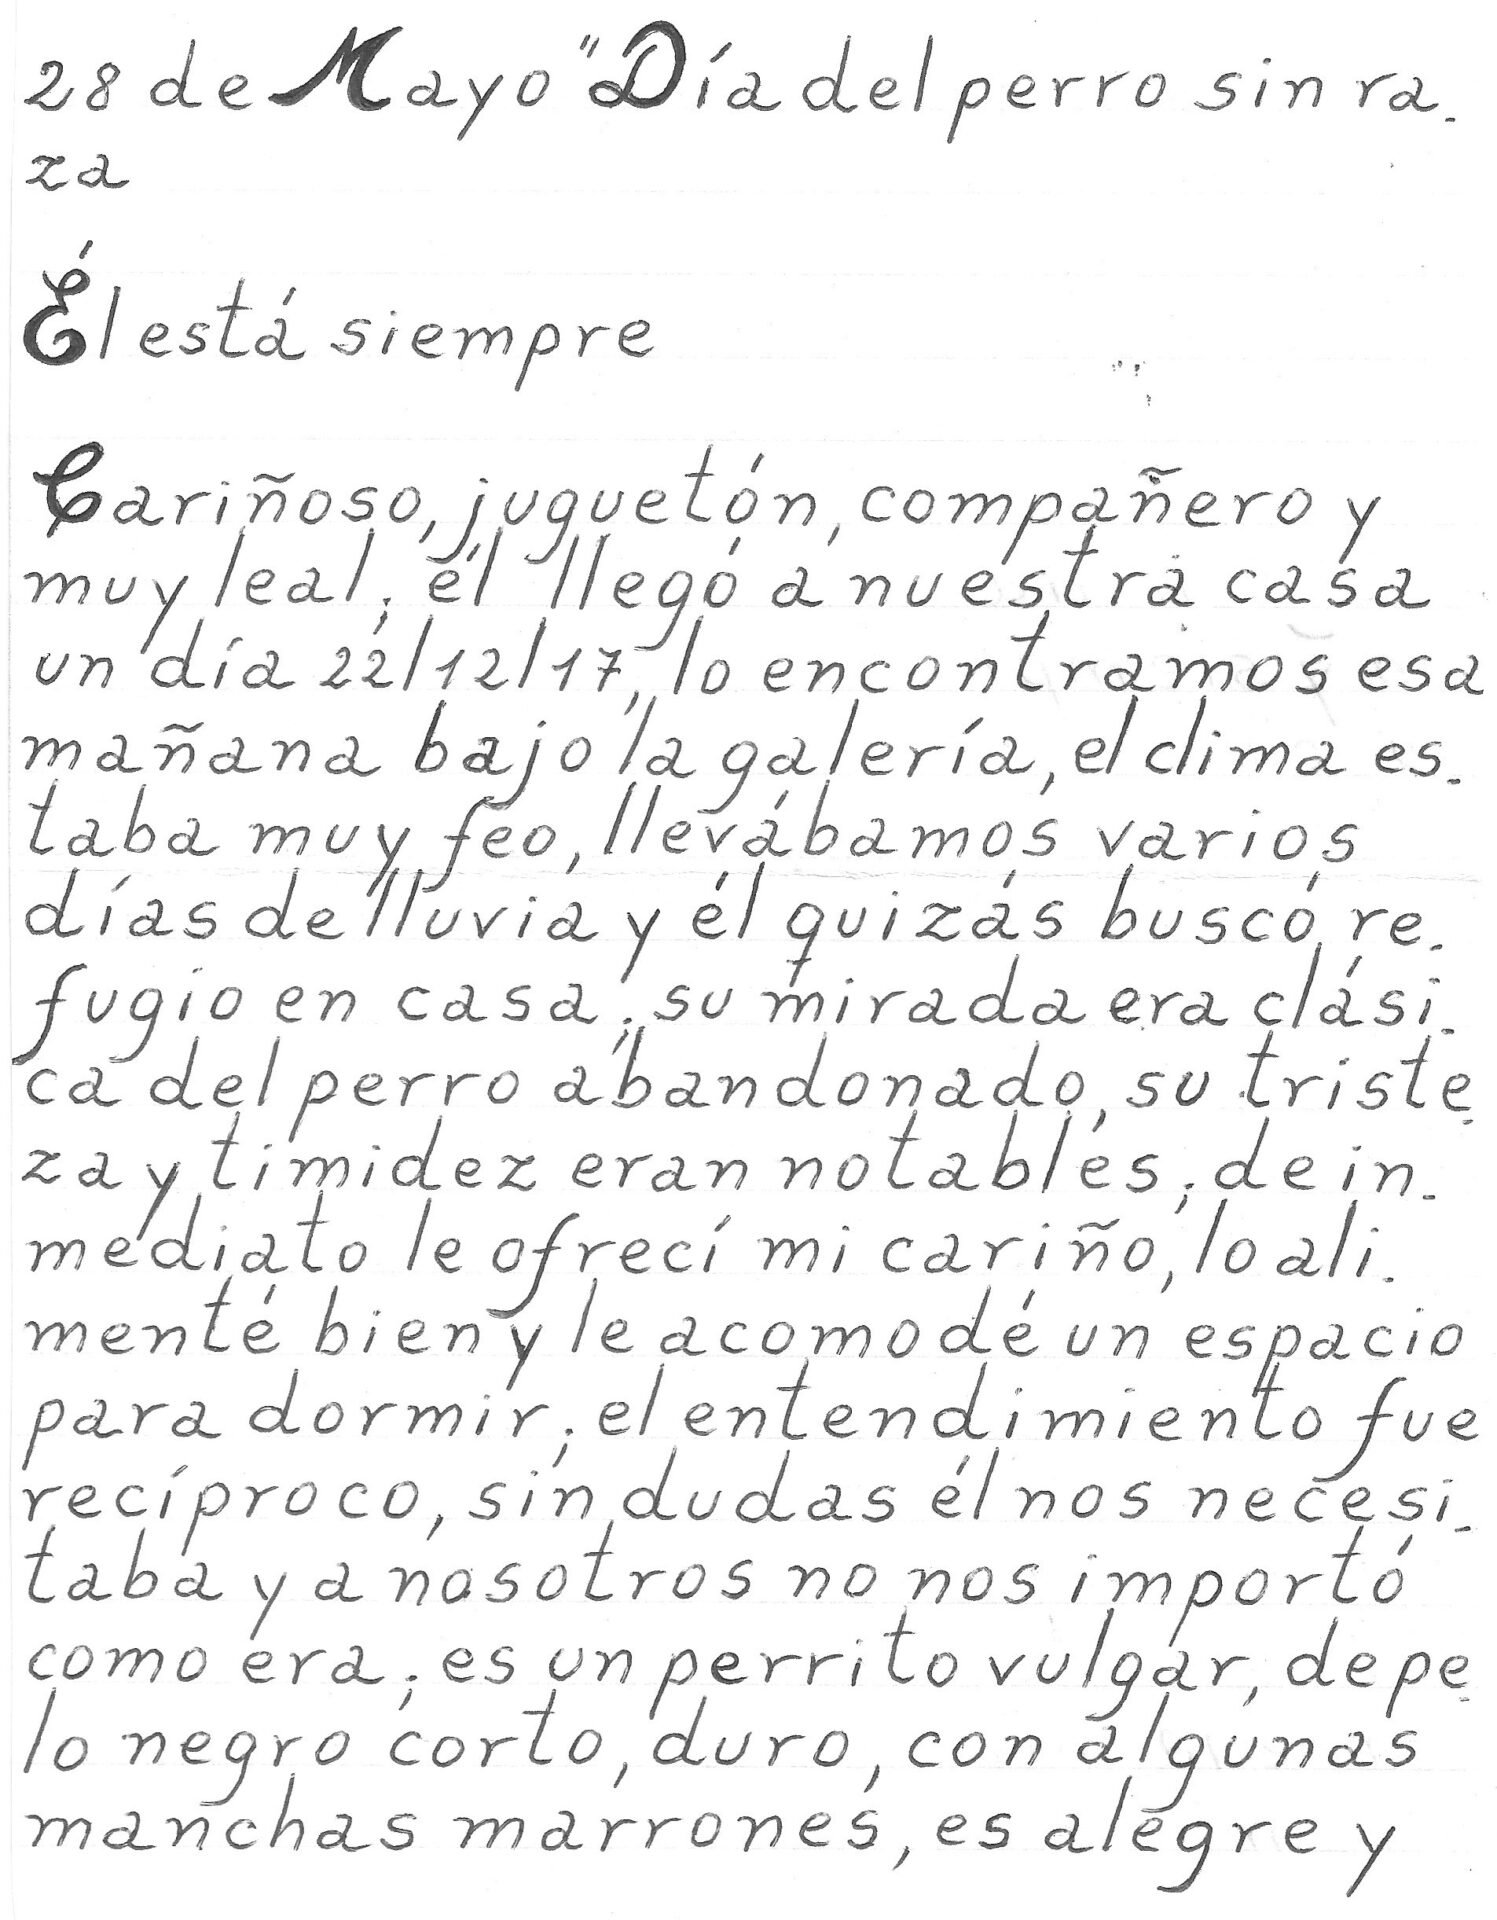 28 de Mayo "Día del perro sin ra-
za
Él está siempre
Cariñoso, juguetón, compañero y
muy leal; él llegó a nuestra casa
un día 22/12/17, lo encontramos esa
mañana bajo la galería, el clima es-
taba muy feo, llevábamos varios
días de lluvia y él quizás buscó re-
fugio en casa; su mirada era clási-
ca del perro abandonado, su triste-
za y timidez eran notables; de in-
mediato le ofrecí mi cariño, lo ali-
menté bien y le acomodé un espacio
para dormir; el entendimiento fue
recíproco, sin dudas él nos necesi-
taba y a nosotros no nos importó
como era; es un perrito vulgar, de pe-
lo negro corto, duro, con algunas
manchas marrones, es alegre y